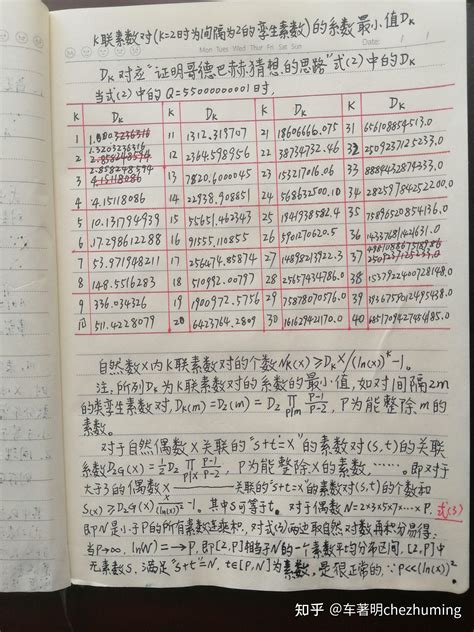 K联素数对(K=2时为间隔为2的孪生素数)的系数最小值DK
Mon Tues Wed Thur Fri Sat Sun
DK对应"证明哥德巴赫猜想的思路"式(2)中的DK
当式(2)中的Q=55000000001时,
K DK K DK K DK K DK
1 1.3203236316 11 1312.319707 21 18606666.075 31 656108854513.0
2 2.858248594 12 2364.598956 22 38734732.46 32 2509237125233.0
3 4.15118086 13 7820.600045 23 153217016.06 33 8889432874333.0
4 4.15118086 14 22938.908651 24 568632500.10 34 28259784252200.0
5 10.131794939 15 55651.462343 25 1941938582.4 35 75896520854136.0
6 17.298612288 16 91555.110855 26 5901270620.5
7 53.971948211 17 256474.85874 27 14898213922.3
8 148.5516283 18 510992.00797 28 25657434786.0
9 336.034326 19 1900972.5756 29 75878070576.0
10 511.4228079 20 6423764.2809 30 161629421170.0
自然数X内K联素数对的个数NK(X)≥DK X/(ln(X))^K-1。
注:所列DK为K联素数对的系数的最小值,如对间隔2m
的类孪生素数对,DK(m)=D2(m)=D2∏p|m P-1/P-2,P为能整除m的
素数。
对于自然偶数X关联的"s+t=X"的素数对(s,t)的关联
系数D2G(X)=½D2∏p|x P-1/P-2,P为能整除X的素数,……。即对于
大于3的偶数X——关联的"s+t=X"的素数对(s,t)的个数和
S(X)≥D2G(X) X/(ln(X))²-1。其中S可等于t。对于偶数N=2×3×5×7×…×P, 式(3)
即N是小于P的所有素数连乘积,对式(3)两边取自然对数再积分易得:
当P→∞, lnN=→P,即[2,P]相当于N的一个素数平均分布区间,[2,P]中
无素数s,满足"s+t"=N,t∈[P,N]为素数,是很正常的,∵P<<(ln(X))²
知乎 @车著明chezhuming